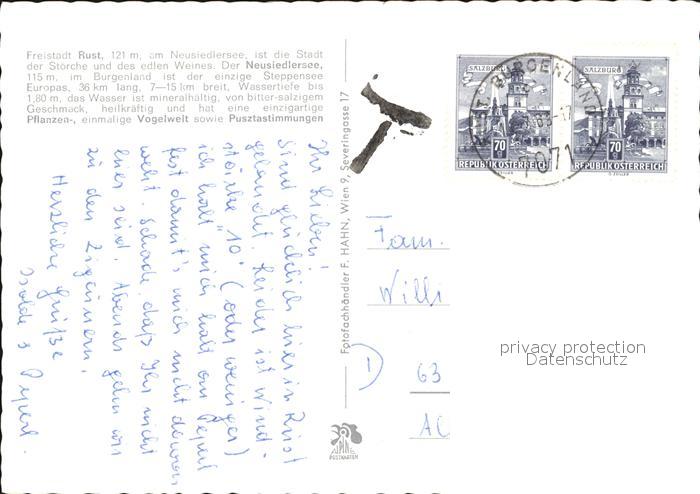 Freistadt Rust, 121 m, am Neusiedlersee, ist die Stadt
der Störche und des edlen Weines. Der Neusiedlersee,
115 m, im Burgenland ist der einzige Steppensee
Europas, 36 km lang, 7—15 km breit, Wassertiefe bis
1,80 m, das Wasser ist mineralhältig, von bitter-salzigem
Geschmack, heilkräftig und hat eine einzigartige
Pflanzen-, einmalige Vogelwelt sowie Pusztastimmungen
Ihr Lieben!
Sind glücklich hier in Rust
gelandet. Leider ist Wind-
stärke "10" (oder weniger)
ich halt mich halt am Peperl
fest damit's mich nicht davon
weht. Schade, daß Ihr nicht
hier seid. Abends gehn wir
zu den Zigeunern.
Herzliche Grüße
Isolde & Peperl.
Fotofachhändler F. HAHN, Wien 9, Severingasse 17
POSTKARTEN
SALZBURG
70
REPUBLIK ÖSTERREICH
SALZBURG
70
REPUBLIK ÖSTERREICH
RUST, BURGENLAND
7071
Fam.
Willi
D
63
privacy protection
Datenschutz